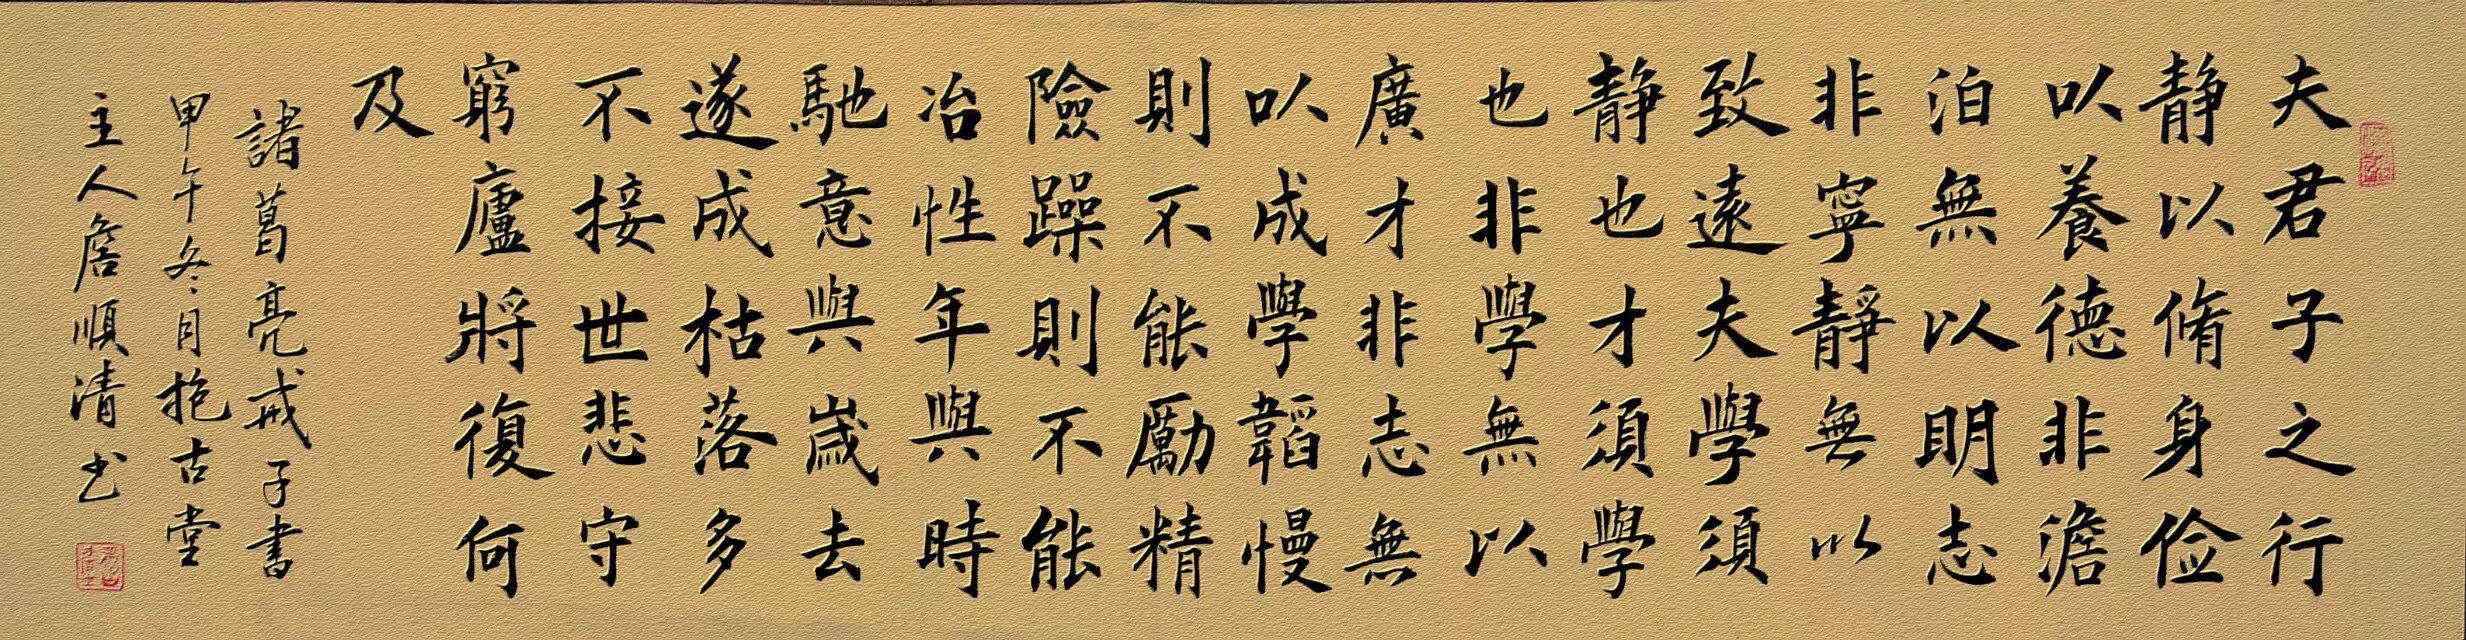 夫君子之行
静以脩身俭
以養德非澹
泊無以明志
非寧靜無以
致遠夫學須
静也才須學
也非學無以
廣才非志無
以成學韜慢
則不能勵精
險躁則不能
冶性年與時
馳意與歲去
遂成枯落多
不接世悲守
窮廬將復何
及
諸葛亮戒子書
甲午冬月抱古堂
主人詹順清书